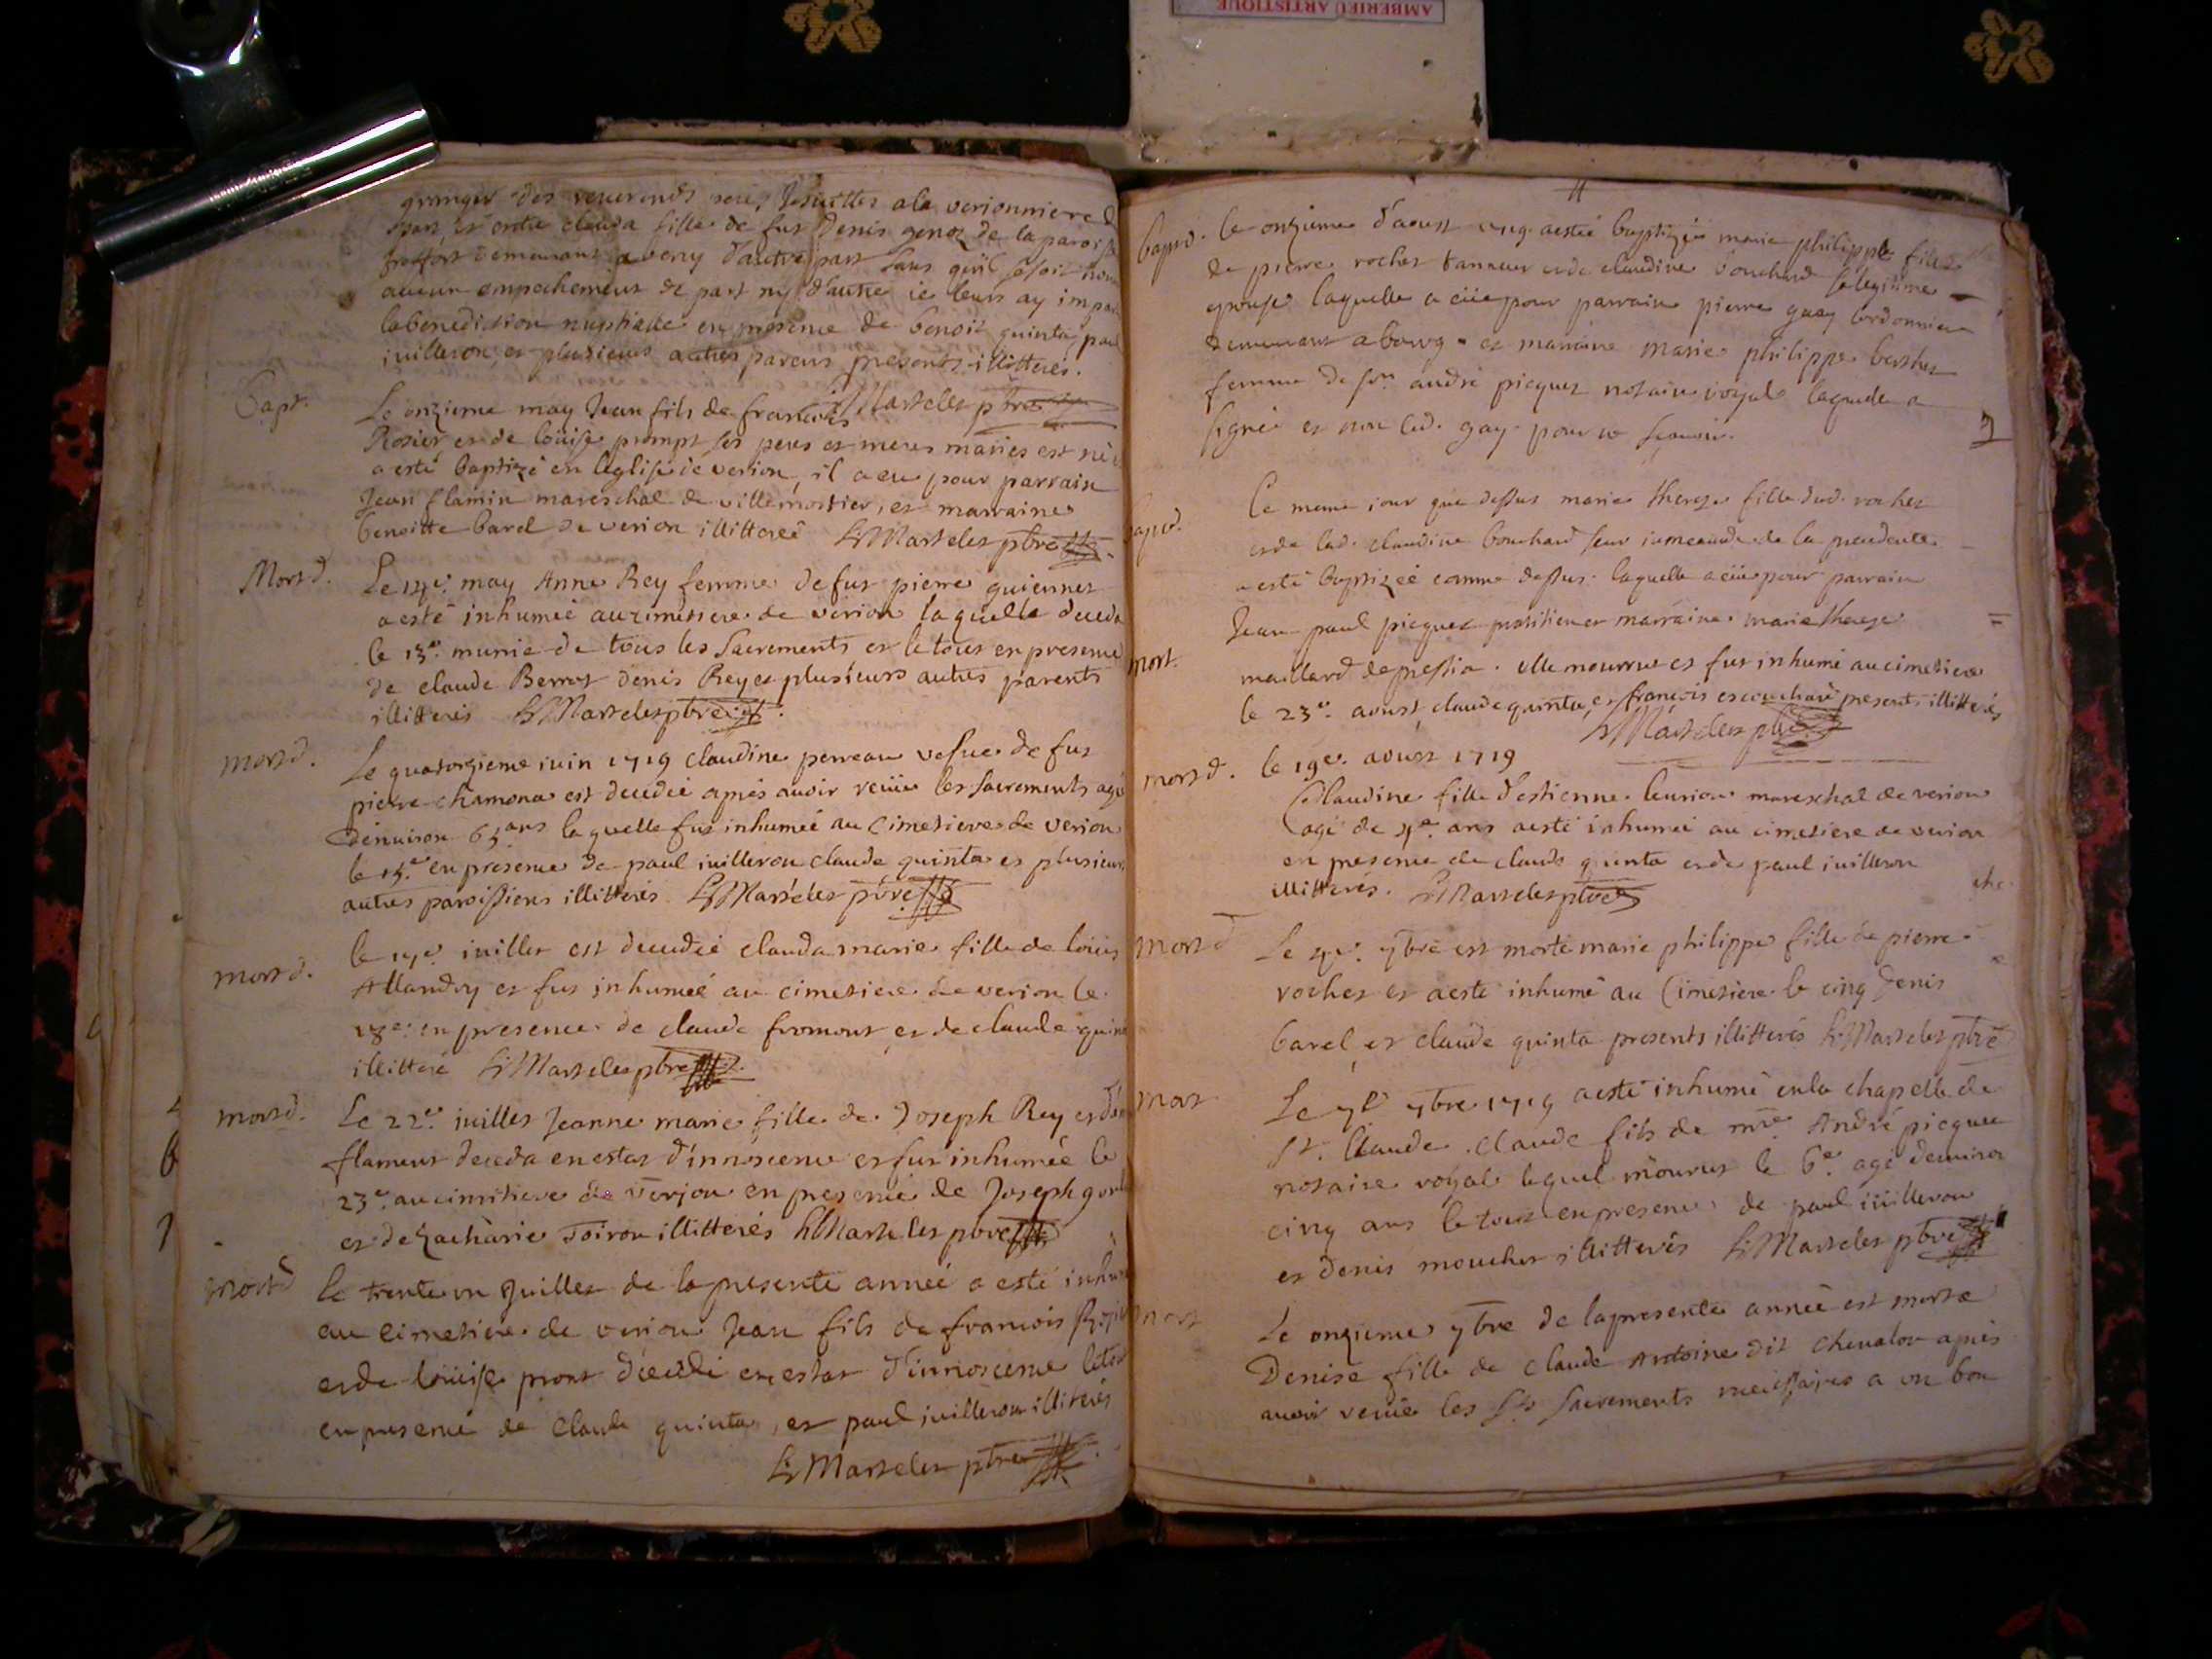 AMBERIEU ARTISTIQUE
granger des reverends peres Jesuittes a la verionniere
part, et entre clauda fille de fut Denis genoz de la parois
demeurant a verry d'autre part sans qu'il se soit
aucun empechement de part ny d'autre ie leurs ay impar
la benediction nuptialle en presence de benoit quinta, paul
iuilleron, et plusieurs autres parens presents illitteres.
Marteles ptre
Bapt.
Le onzieme may Jean fils de francois
Rosier et de loüise prompt ses peres et meres mariés est né
a esté baptizé en leglise de verion, il a eu pour parrain
Jean flamin mareschal de villemostier, et marraine
benoitte barel de verion illitteréé Marteles ptre
Mort d.
Le 14e. may Anne Rey femme de fut pierre guiennet
a esté inhumeé au cimetiere de verion laquelle deceda
le 13e. munie de tous les sacrements et le tout en presence
de claude Berrot denis Rey et plusieurs autres parents
illitterés Marteles ptre
mort d.
Le quatorzieme iuin 1719 claudine perreau vefue de fut
pierre chamona est decedeé apres avoir receüe les sacrements ageé
denuiron 65 ans laquelle fut inhumeé au Cimetiere de verion
le 15e en presence de paul iuilleron claude quinta et plusieurs
autres paroissiens illitterés Marteles ptre
mort d.
le 17e. iuillet est decedeé clauda marie fille de loüis
Allandry et fut inhumeé au cimetiere de verion le
18e. en presence de claude fromont et de claude quin
illitteré Marteles ptre
mort d.
Le 22e. iuillet Jeanne marie fille de Joseph Rey et
flament deceda en estat d'innoscence et fut inhumée le
23e. au cimitiere de verjon en presence de Joseph
et de Zacharie Toiron illitterés Marteles ptre
mort d
le trente un Juillet de la presente anneé a esté inhumé
au cimetiere de verion Jean fils de francois Rosier
et de loüise pront décédé en estat d'innoscence le tout
en presence de claude quinta, et paul iuilleron illiterés
Marteles ptre
bapt d.
le onzieme d'aoust 1719 a estée baptizée marie philippe fille
de pierre rochet tanneur et de claudine bouchard sa legitime
epouse laquelle a eüe pour parrain pierre gay cordonnier
demeurant a bourg et marraine marie philippe berthet
femme de sr. andré picquet notaire royal laquelle a
signé et non led. gay pour ne sçavoir.
bapt d.
le meme iour que dessus marie therese fille dud. rochet
et de lad. claudine bouchard seur iumeaude de la precedente
a esté baptizeé comme dessus laquelle a eüe pour parrain
Jean paul picquet praticien et marraine marie therese
maillard de pressia. elle mourrut et fut inhumé au cimetiere
mort.
le 23e. aoust claude quinta, et francois presents illitterés
Marteles ptre
mort d.
le 19e. aoust 1719
Claudine fille d'estienne leurion mareschal de verion
agé de 4e. ans a esté inhumeé au cimetiere de verion
en presence de claude quinta et de paul iuilleron
illitterés. Marteles ptre
mort d
Le 4e. 7bre est morte marie philippe fille de pierre
rochet et a esté inhumé au Cimetiere le cinq denis
barel, et claude quinta presents illitterés Marteles ptre
mort
Le 7e 7bre 1719 a esté inhumé en la chapelle de
St. Claude. claude fils de mre. André picquet
notaire royal lequel mourut le 6e. agé denuiron
cinq ans le tout en presence de paul iuilleron
et denis mouchet illitterés Marteles ptre
mort
Le onzieme 7bre de la presente anneé est morte
Denise fille de claude Antoine dit chevalon apres
avoir receüe les Sts sacrements necessaires a un bon